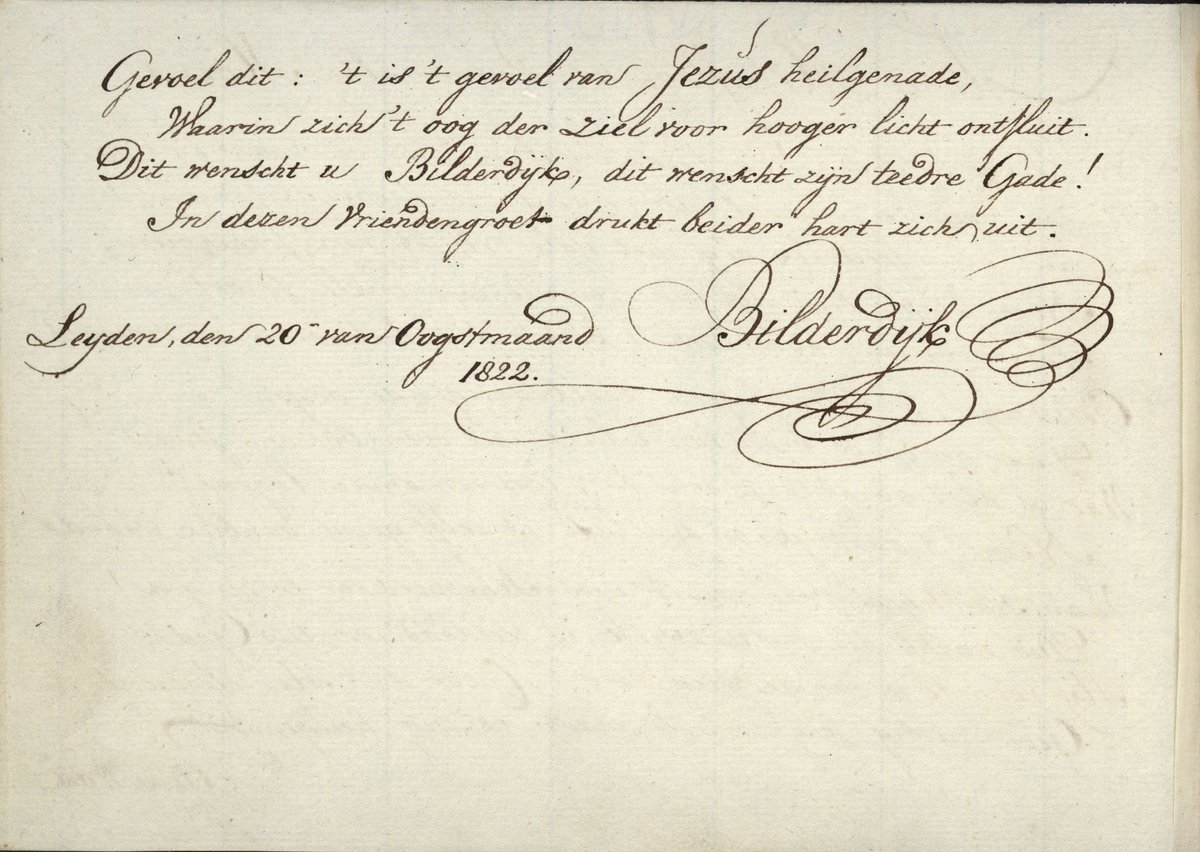 Gevoel dit: 't is 't gevoel van Jezus heilgenade,
Waarin zich 't oog der ziel voor hooger licht ontsluit.
Dit wenscht u Bilderdijk, dit wenscht zijn teedre Gade!
In dezen Vriendengroet drukt beider hart zich uit.
Leyden, den 20 van Oogstmaand
1822.
Bilderdijk